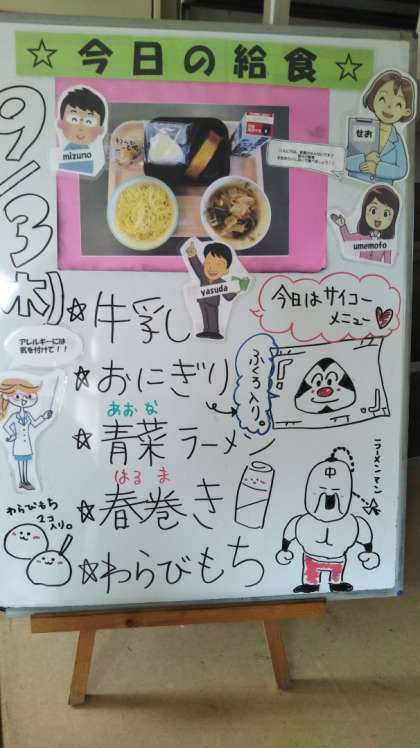 ☆今日の給食☆
9/3(木)
mizuno
せお
umemoto
yasuda
今日はサイコー
メニュー
☆牛乳
アレルギーには
気を付けて!!
☆おにぎり
ふくろ入り。
あおな
☆青菜ラーメン
はるま
☆春巻き
わらびもち
2コ
入り。
☆わらびもち
中
ラーメンマン